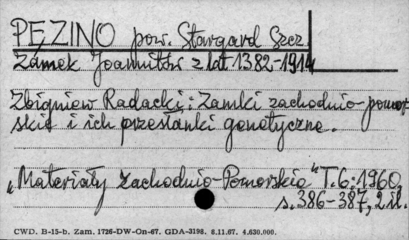 PĘZINO pow. Stargard Szcz.
Zamek Joannitów z lat 1382-1914
Zbigniew Radacki: Zamki zachodnio-pomor-
skie i ich przesłanki genetyczne.
"Materiały Zachodnio-Pomorskie" T.6:1960,
s. 386-387, 2 il.
CWD. B-15-b. Zam. 1726-DW-On-67. GDA-3198. 6.11.67. 4.630.000.